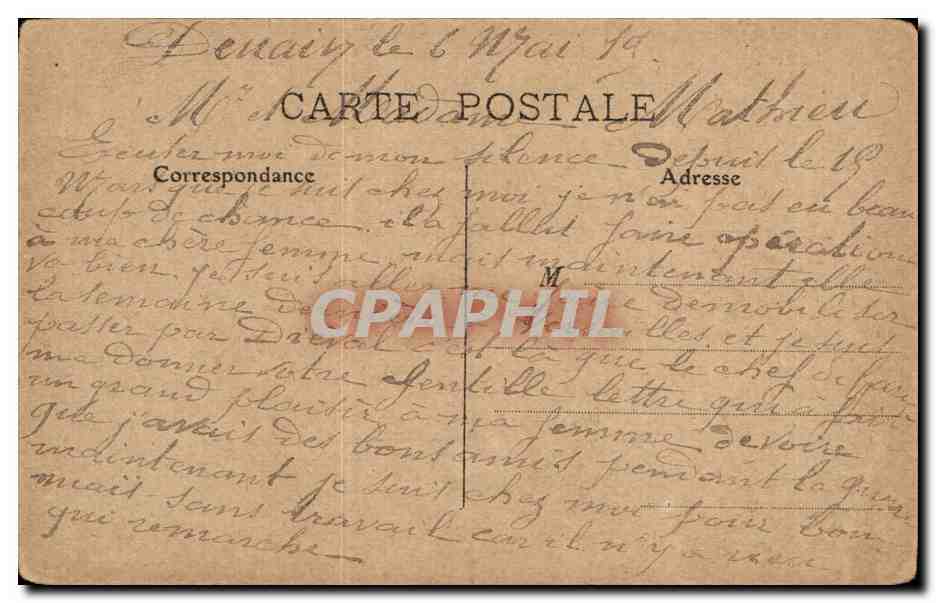 Denain le 6 Mai 19
CARTE POSTALE
Mr et Madame Mathieu
Ecuser moi de mon silence depuit le 19
Correspondance
Adresse
Mars que je suit chez moi je n'ai pas eu beau
coup de chance il a fallut faire opération
à ma chère femme mais maintenant elle
va bien je suis aller me faire demobiliser
M
la semaine dernière à Lille et je suis
CPAPHIL
passer par Dieval c'est la que le chef de gare
ma donner votre gentille lettre qui à fait
un grand plaisir à ma femme de voire
que j'avais des bons amis pendant la guerre
maintenant je suit chez moi pour bon
mais sans travail car il n'y a rien
qui remarche